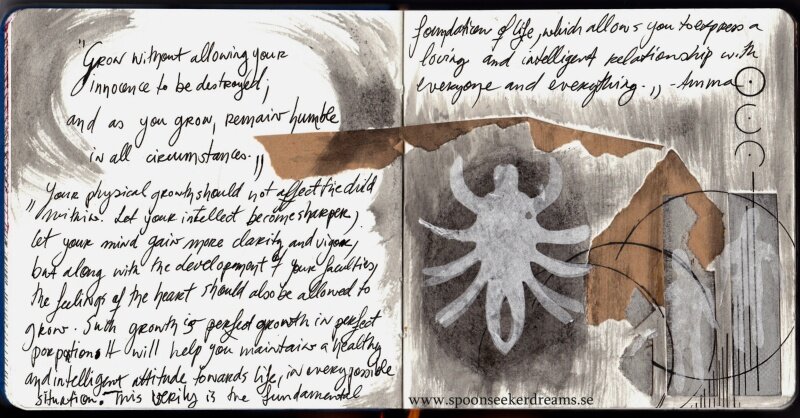 "Grow without allowing your
innocence to be destroyed;
and as you grow, remain humble
in all circumstances. "
"Your physical growth should not affect the child
within. Let your intellect become sharper,
let your mind gain more clarity and vigour,
but along with the development of your faculties,
the feelings of the heart should also be allowed to
grow. Such growth is perfect growth in perfect
porportion. It will help you maintain a healthy
and intelligent attitude towards life, in every possible
situation. This verity is the fundamental
foundation of life, which allows you to express a
loving and intelligent relationship with
everyone and everything. " - Amma
www.spoonseekerdreams.se